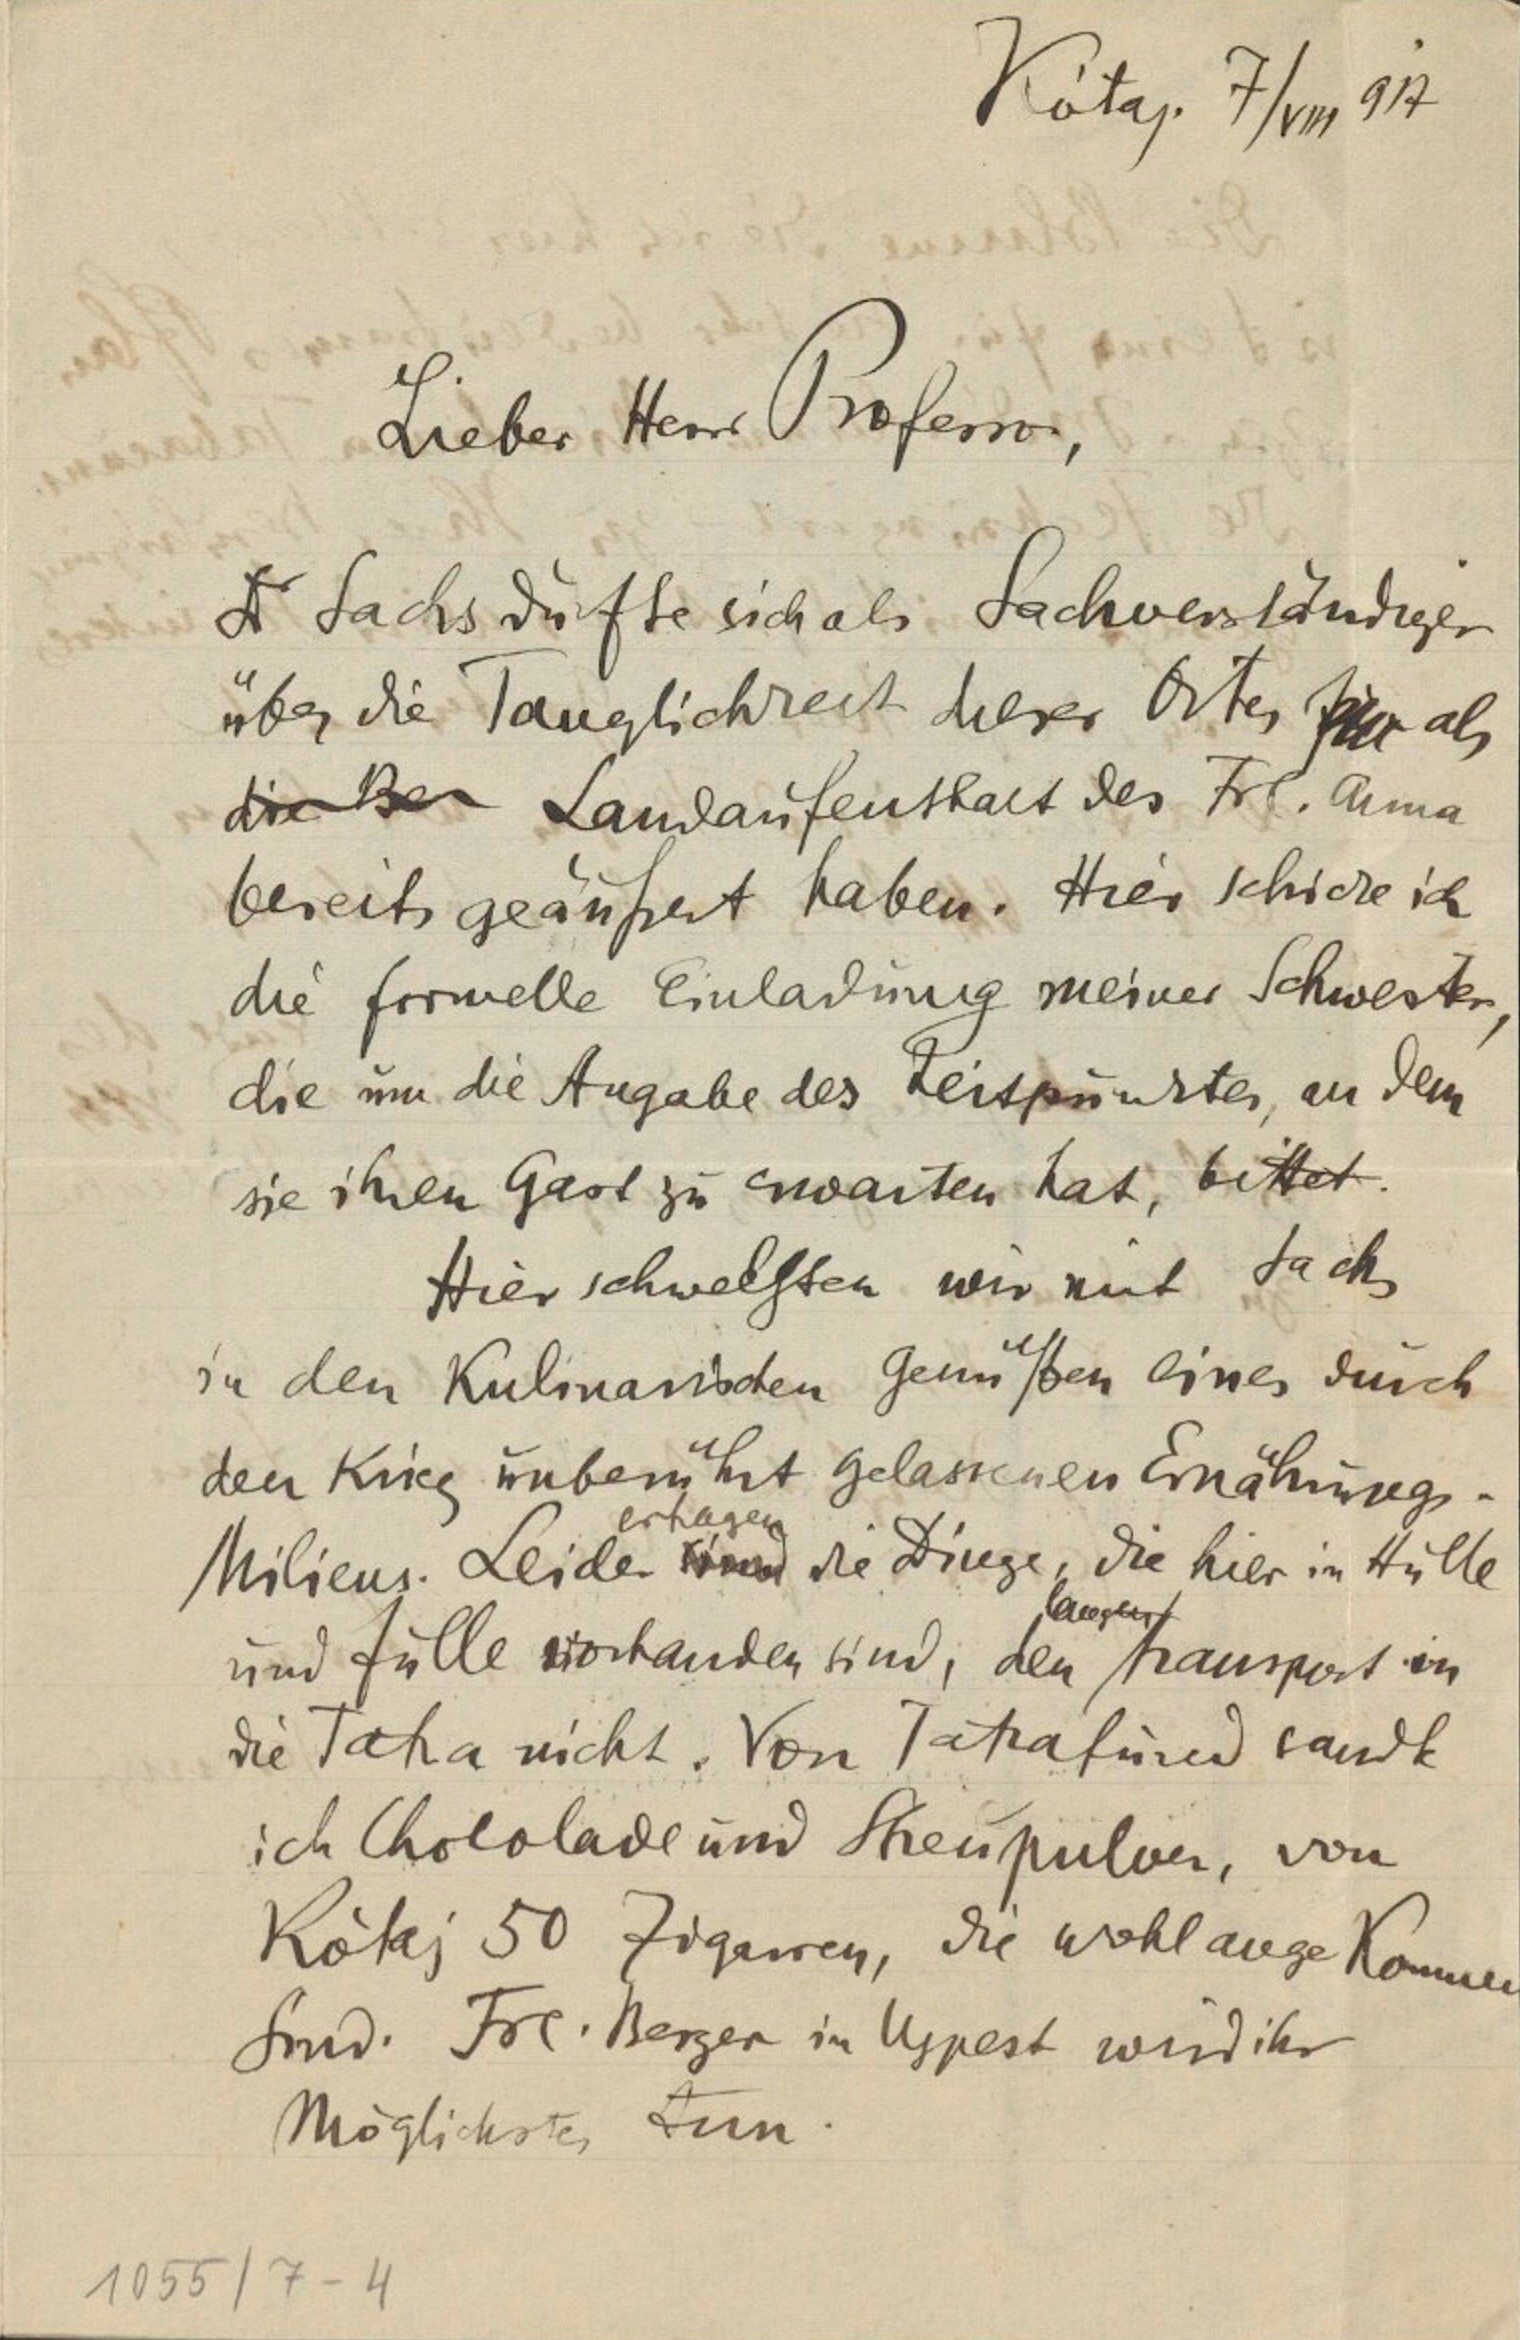 Kótaj. 7/VIII 917
Lieber Herr Professor,
Dr Sachs dürfte sich als Sachverständiger
über die Tauglichkeit dieses Ortes für als
die Ber Landaufenthalt des Frl. Anna
bereits geäußert haben. Hier schicke ich
die formelle Einladung meiner Schwester,
die um die Angabe des Zeitpunktes, an dem
sie ihren Gast zu erwarten hat, bittet.
Hier schwelgten wir mit Sachs
in den Kulinarischen Genüßen eines durch
den Krieg unberührt gelassenen Ernährungs-
Milieus. Leider sind ertragen die Dinge, die hier in Hülle
und Fülle vorhanden sind, den langen transport in
die Tatra nicht. Von Tátrafüred sandte
ich Chocolade und Streupulver, von
Kótaj 50 Zigarren, die wohl angekommen
sind. Frl. Berger in Ujpest wird ihr
Möglichstes tun.
1055/7-4